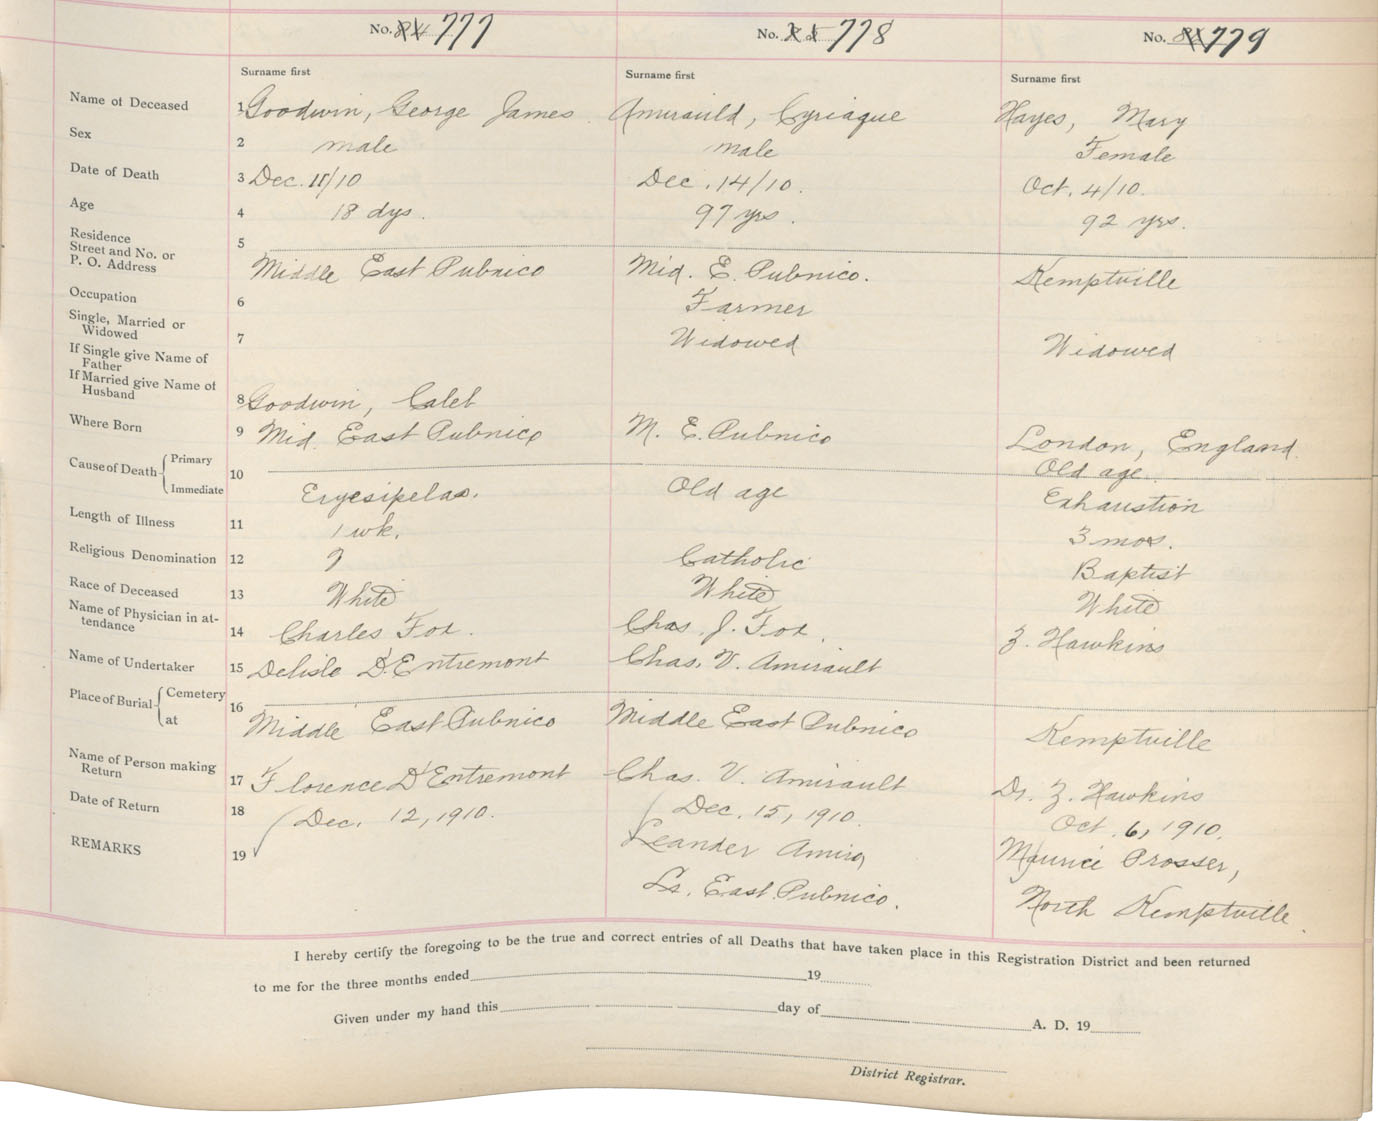 No. 84 777 No. 85 778 No. 86 779
Surname first Surname first Surname first
Name of Deceased 1 Goodwin, George James Amirauld, Cyriaque Hayes, Mary
Sex 2 male male Female
Date of Death 3 Dec. 11/10 Dec. 14/10. Oct. 4/10.
Age 4 18 dys. 97 yrs. 92 yrs.
Residence 5
Street and No. or
P. O. Address Middle East Pubnico Mid. E. Pubnico. Kemptville
Occupation 6 Farmer
Single, Married or
Widowed 7 Widowed Widowed
If Single give Name of
Father
If Married give Name of
Husband 8 Goodwin, Caleb
Where Born 9 Mid. East Pubnico M. E. Pubnico London, England.
Cause of Death Primary 10 Old age.
Immediate Eryesipelas. Old age Exhaustion
Length of Illness 11 1 wk. 3 mos.
Religious Denomination 12 ? Catholic Baptist
Race of Deceased 13 White White White
Name of Physician in at-
tendance 14 Charles Fox. Chas. J. Fox. Z. Hawkins
Name of Undertaker 15 Delisle D'Entremont Chas. V. Amirault
Place of Burial Cemetery 16
at Middle East Pubnico Middle East Pubnico Kemptville
Name of Person making
Return 17 Florence D'Entremont Chas. V. Amirault Dr. Z. Hawkins
Date of Return 18 Dec. 12, 1910. Dec. 15, 1910. Oct. 6, 1910.
REMARKS 19 Leander Amiro, Maurice Prosser,
Lr. East Pubnico. North Kemptville.
I hereby certify the foregoing to be the true and correct entries of all Deaths that have taken place in this Registration District and been returned
to me for the three months ended 19
Given under my hand this day of A. D. 19
District Registrar.